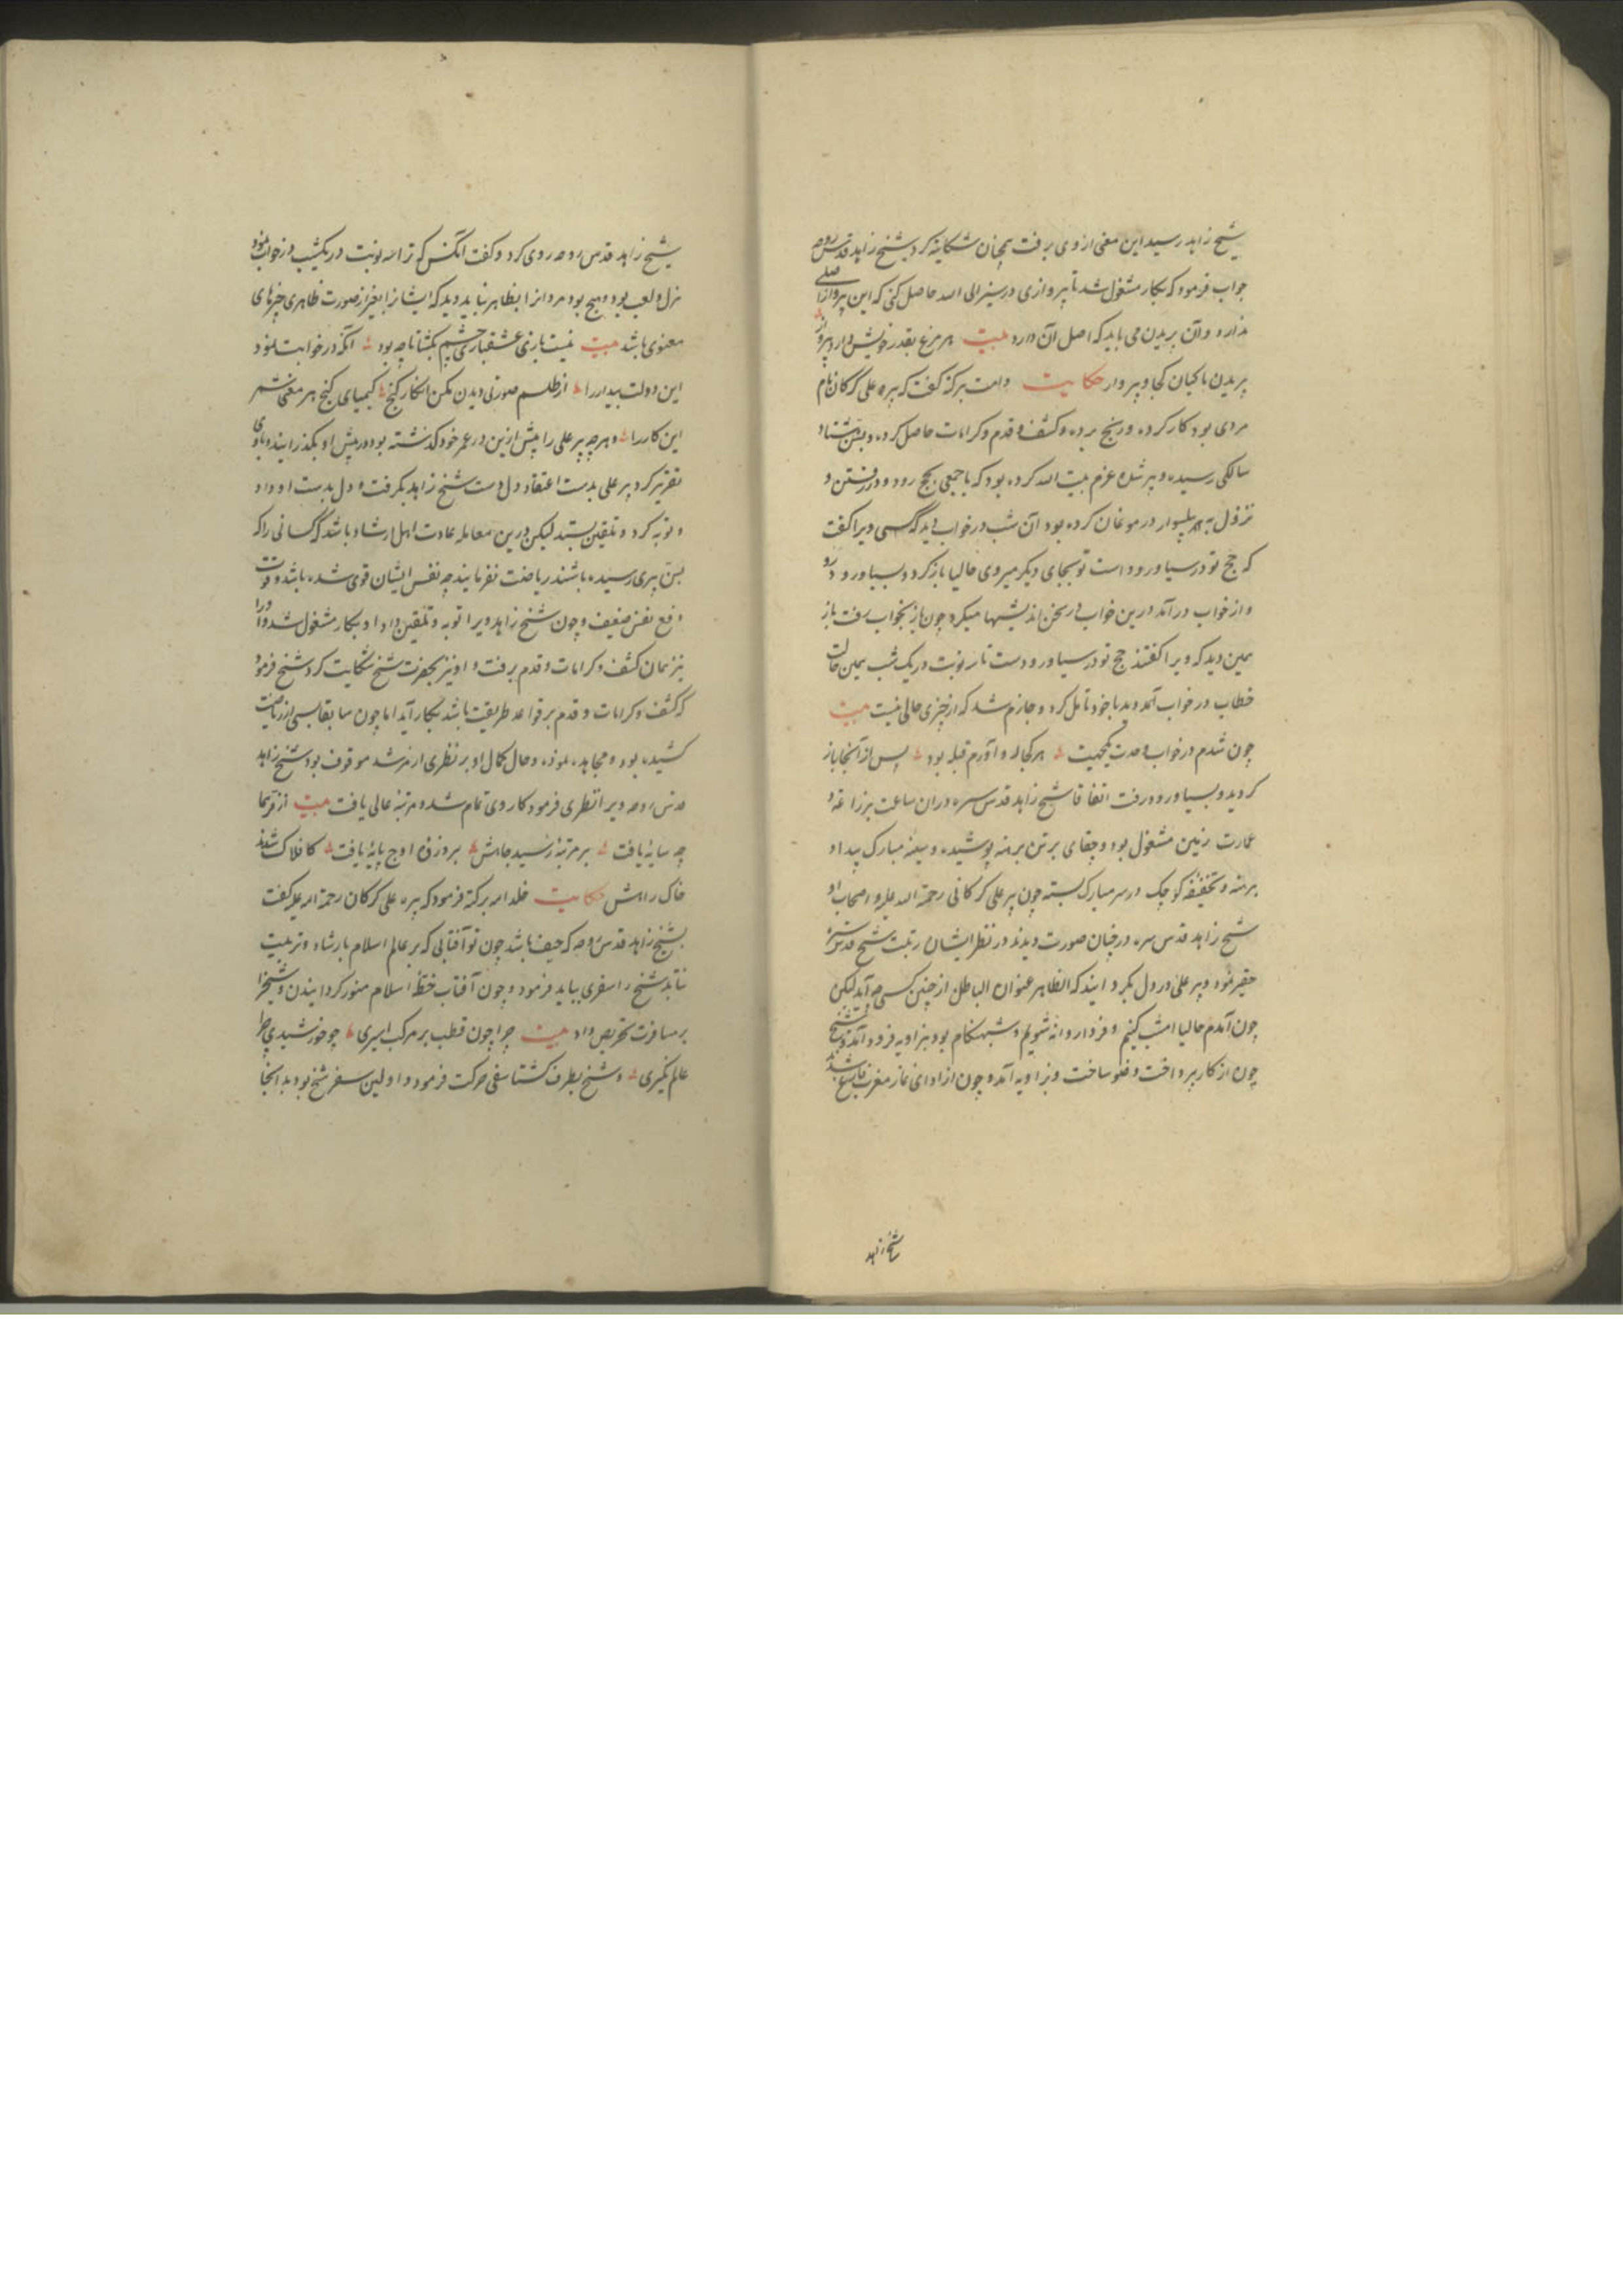 شیخ زاهد رسید این معنی از وی برفت همچنان شکایت کرد شیخ زاهد قدس روحه
جواب فرمود که بکار مشغول شد تا پروازی در سیر الی الله حاصل کنی که این پرواز اصلی
ندارد و آن پریدن می باید که اصل آن دارد بیت هر مرغ بقدر خویش دارد پرواز
پریدن ماکیان کجا و پرواز حکایت دامت برکته گفت که پیره علی کرکان نام
مردی بود کار کرده و رنج برده و کشف و قدم و کرامات حاصل کرده و بسن هشتاد
سالکی رسیده و پیر شده عزم بیت الله کرده بود که با جمعی بحج رود و در رفتن و
نزول به پلیسوار در موغان کرده بود آن شب در خواب دید که کسی ویرا گفت
که حج تو در سیاورود است تو بجای دیکر میروی حالیا بازکرد و بسیاورود رو
و از خواب درآمد درین خواب در سخن اندیشها میکرد چون باز بخواب رفت باز
همین دید که ویرا گفتند حج تو در سیاورودست تا سه نوبت در یک شب همین حالت
خطاب در خواب آمد وید با خود تأمل کرد و جازم شد که از چیزی خالی نیست بیت
چون شدم در خواب وحدت یکجهت هر کجا رو آورم قبله بود پس از آنجا باز
کردید و بسیاورود رفت اتفاقا شیخ زاهد قدس سره در آن ساعت بزراعت و
عمارت زمین مشغول بود و چقای بر تن برهنه پوشیده و سینه مبارک پیدا و
برهنه و تخفیفه کوچک در سر مبارک بسته چون پیر علی کرکانی رحمة الله علیه و اصحاب او
شیخ زاهد قدس سره در چنان صورت دیدند در نظر ایشان رتبت شیخ قدس سره
حقیر نمود و پیر علی در دل بکردانید که الظاهر عنوان الباطن از چنین کسی چه آید لیکن
چون آمدم حالیا امشب کنیم و فردا روانه شویم و شبهنکام بود بزاویه فرود آمدند و شیخ
چون از کار پرداخت وضو ساخت و بزاویه آمد و چون از ادای نماز مغرب فارغ شدند
شیخ زاهد
شیخ زاهد قدس روحه روی کرد و گفت آنکس که ترا سه نوبت در یکشب در خواب نمود
هزل و لعب بود و هیچ بود مردانرا بظاهر نباید دید که ایشانرا بغیر از صورت ظاهری چیزهای
معنوی باشد بیت نیست بازی عشقبازی چشم بکشا تا چه بود آنکه در خوابت نمود
این دولت بیدار را از طلسم صورتی دیدن مکن انکار کنج کیمیای کنج هر معنی شمر
این کار را و هر چه پیر علی را پیش ازین در عمر خود گذشته بود در پیش او بگذرانید و با وی
تقریر کرد پیر علی بدست اعتقاد دل دست شیخ زاهد بگرفت و دل بدست او داد
و توبه کرد و تلقین بستد لیکن درین معامله عادت اهل ارشاد باشد که کسانی را که
بسن پیری رسیده باشند ریاضت نفرمایند چه نفس ایشان قوی شده باشد و قوت
دفع نفس ضعیف و چون شیخ زاهد ویرا توبه و تلقین داد و بکار مشغول شد ورا
نیز همان کشف و کرامات و قدم برفت و او نیز بحضرت شیخ شکایت کرد شیخ فرمود
که کشف و کرامات و قدم بر قواعد طریقت باشد بکار آید اما چون سابقا بسی از ریاضت
کشیده بود و مجاهده نموده و حال کمال او بر نظری از مرشد موقوف بود شیخ زاهد
قدس روحه ویرا نظری فرمود کار وی تمام شد و مرتبه عالی یافت بیت از فر هما
چه سایهٔ یافت بر مرتبهٔ رسید جاهش بر ذروهٔ اوج پایهٔ یافت کافلاک شدند
خاک راهش حکایت خلد الله برکته فرمود که پیره علی کرکان رحمة الله علیه گفت
بشیخ زاهد قدس روحه که حیف باشد چون تو آفتابی که بر عالم اسلام بارشاد و تربیت
نتابد شیخ را سفری بباید فرمود و چون آفتاب خطهٔ اسلام منور کردانیدن و شیخ را
بر مسافرت تحریص داد بیت چرا چون قطب بر مرکب اسیری چو خورشیدی چرا
عالم نکیری و شیخ بطرف کشتاسفی حرکت فرمود و اولین سفر شیخ بود بدانجا